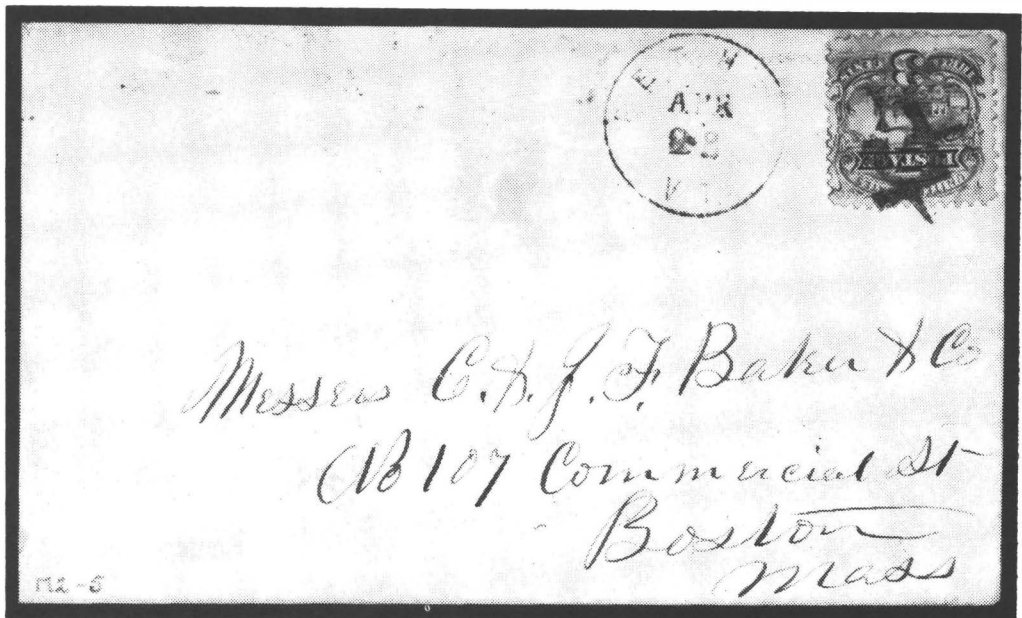 APR
VT.
POSTAGE
Messers C. & J. F. Baker & Co
No 107 Commercial St
Boston
Mass
M2-5